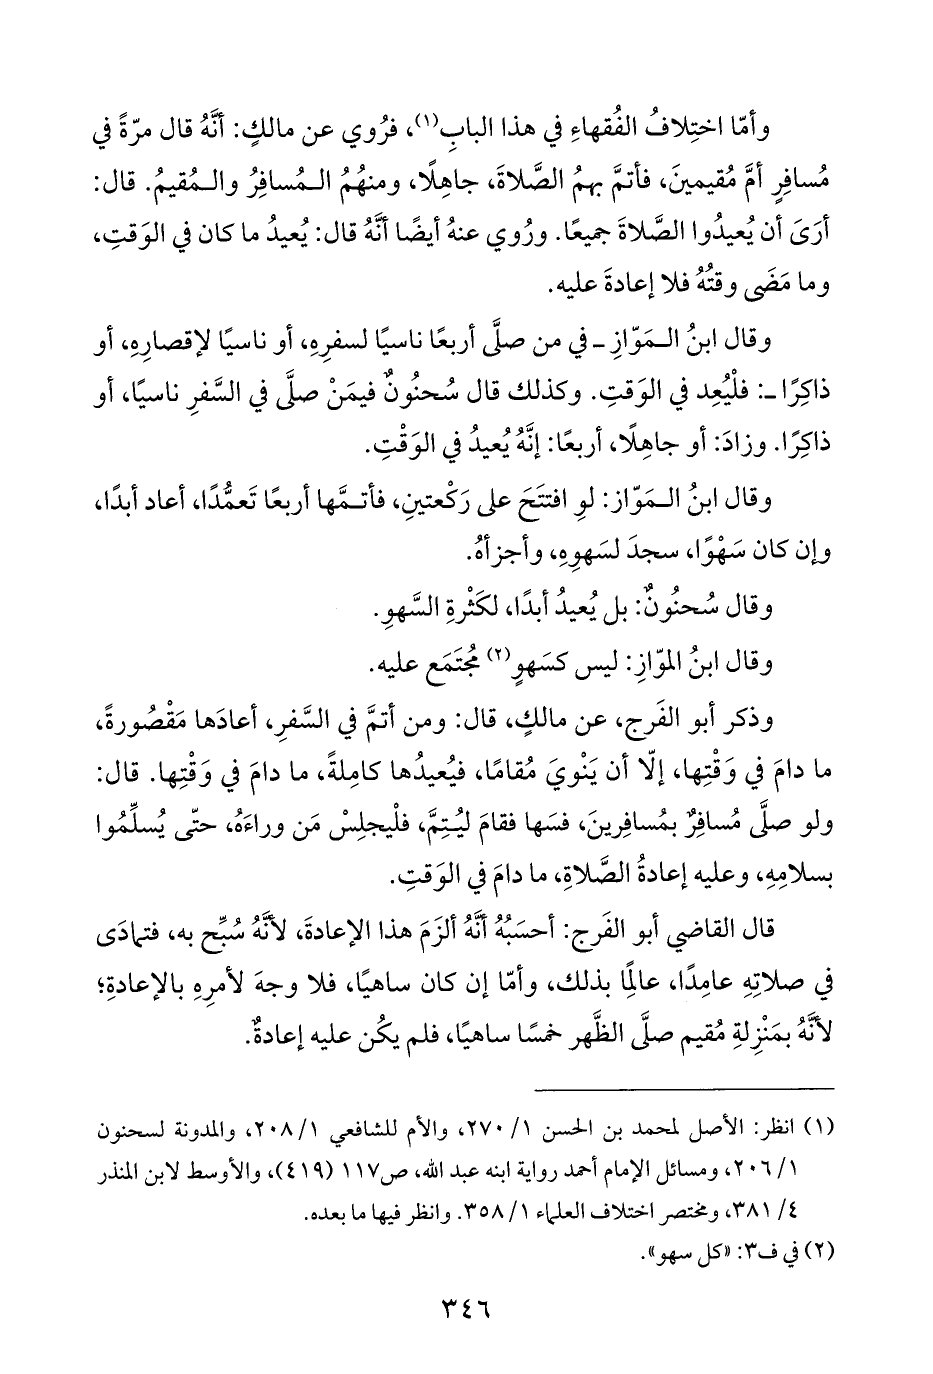 وأمّا اختِلافُ الفُقهاءِ في هذا البابِ(١)، فرُوي عن مالكٍ: أنَّهُ قال مرّةً في
مُسافِرٍ أمَّ مُقيمينَ، فأتمَّ بهِمُ الصَّلاةَ، جاهِلًا، ومنهُمُ الـمُسافِرُ والـمُقيمُ. قال:
أرَىَ أن يُعيدُوا الصَّلاةَ جميعًا. ورُوي عنهُ أيضًا أنَّهُ قال: يُعيدُ ما كان في الوَقتِ،
وما مَضَى وقتُهُ فلا إعادةَ عليه.
وقال ابنُ الـمَوّازِ ـ في من صلَّى أربعًا ناسيًا لسفرِهِ، أو ناسيًا لإقصارِهِ، أو
ذاكِرًا ـ: فلْيُعِد في الوَقتِ. وكذلك قال سُحنُونٌ فيمَنْ صلَّى في السَّفرِ ناسيًا، أو
ذاكِرًا. وزادَ: أو جاهِلًا، أربعًا: إنَّهُ يُعيدُ في الوَقْتِ.
وقال ابنُ الـمَوّاز: لوِ افتتَحَ على رَكْعتينِ، فأتـمَّها أربعًا تَعمُّدًا، أعاد أبدًا،
وإن كان سَهْوًا، سجدَ لسَهوِهِ، وأجزأهُ.
وقال سُحنُونٌ: بل يُعيدُ أبدًا، لكَثْرةِ السَّهوِ.
وقال ابنُ الموّازِ: ليس كسَهوٍ(٢) مُجتَمَع عليه.
وذكر أبو الفَرج، عن مالكٍ، قال: ومن أتمَّ في السَّفر، أعادَها مَقْصُورةً،
ما دامَ في وَقْتِها، إلّا أن يَنْويَ مُقامًا، فيُعيدُها كامِلةً، ما دامَ في وَقْتِها. قال:
ولو صلَّى مُسافِرٌ بمُسافِرينَ، فسَها فقامَ ليُـتِمَّ، فلْيجلِسْ مَن وراءَهُ، حتّى يُسلِّمُوا
بسلامِهِ، وعليه إعادةُ الصَّلاةِ، ما دامَ في الوَقتِ.
قال القاضي أبو الفَرج: أحسَبُهُ أنَّهُ ألزَمَ هذا الإعادةَ، لأنَّهُ سُبِّح به، فتمادَى
في صلاتِهِ عامِدًا، عالمًا بذلك، وأمّا إن كان ساهيًا، فلا وجهَ لأمرِهِ بالإعادةِ؛
لأنَّهُ بمَنْزِلةِ مُقيم صلَّى الظُّهر خمسًا ساهيًا، فلم يكُن عليه إعادةٌ.
(١) انظر: الأصل لمحمد بن الحسن ١/ ٢٧٠، والأم للشافعي ١/ ٢٠٨، والمدونة لسحنون
١/ ٢٠٦، ومسائل الإمام أحمد رواية ابنه عبد الله، ص١١٧ (٤١٩)، والأوسط لابن المنذر
٤/ ٣٨١، ومختصر اختلاف العلماء ١/ ٣٥٨. وانظر فيها ما بعده.
(٢) في ف٣: «كل سهو».
٣٤٦